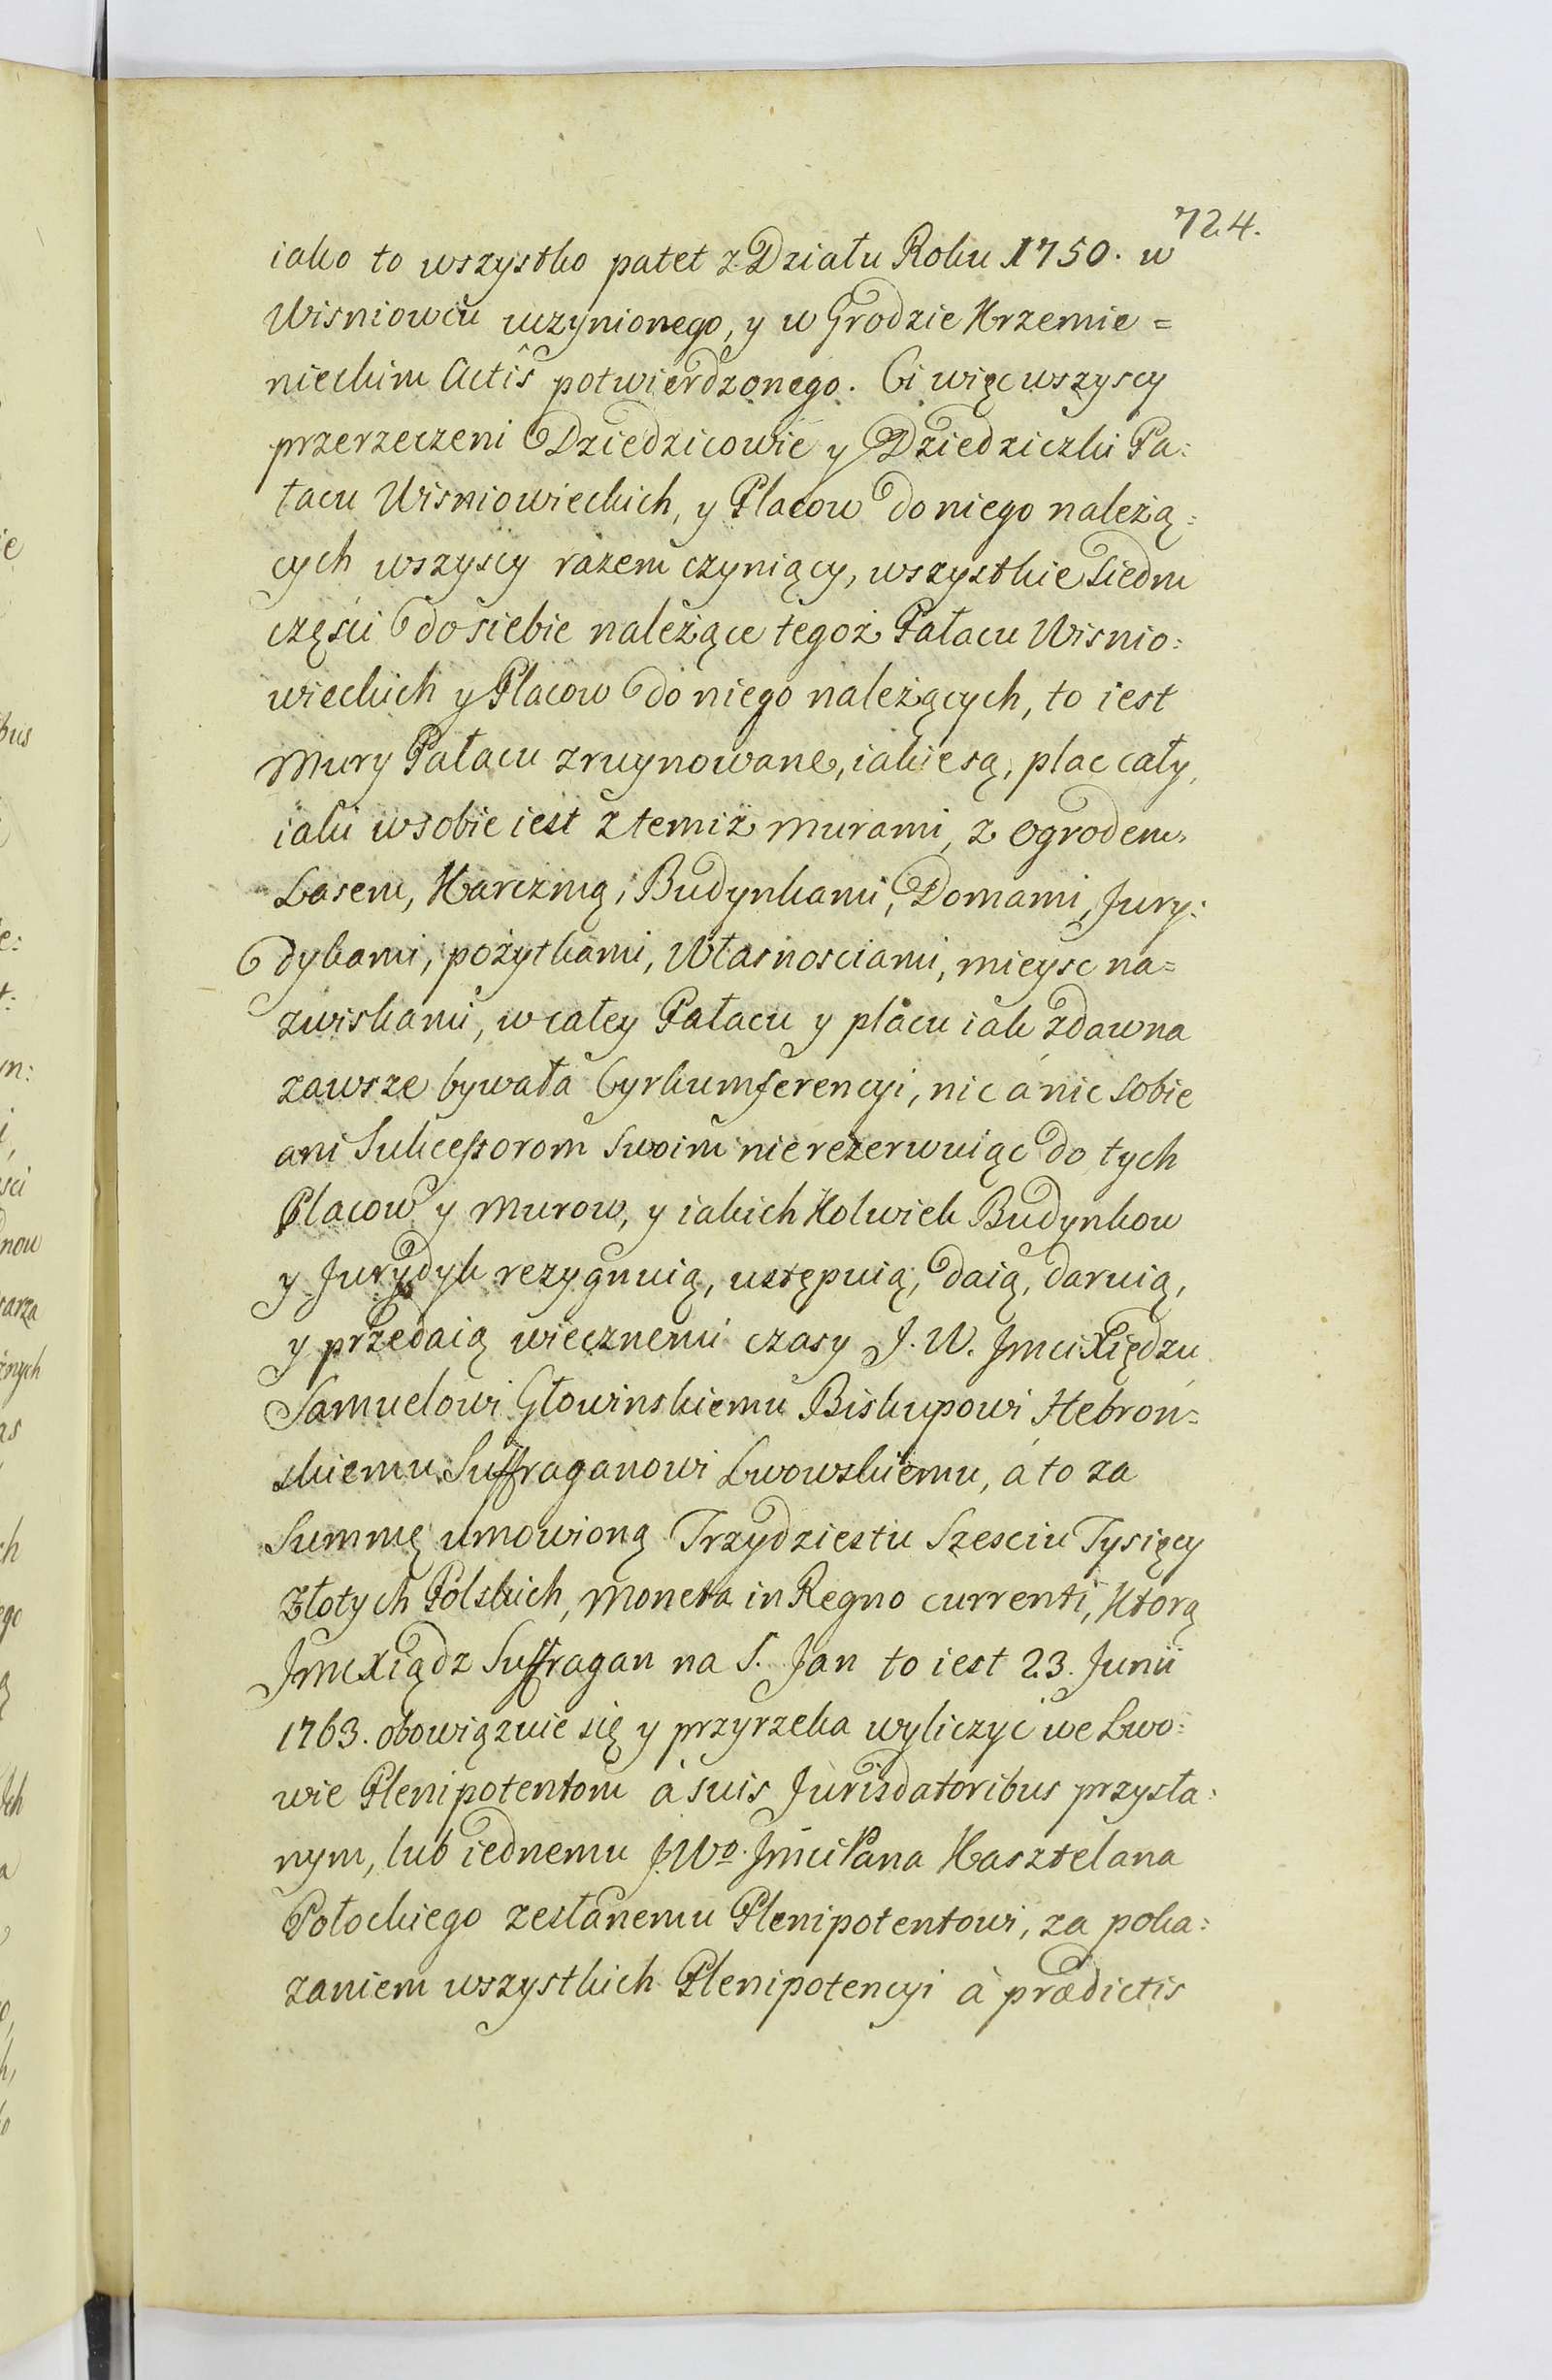 724.
iako to wszystko patet z Działu Roku 1750. w
Wisniowcu uczynionego, y w Grodzie Krzemie =
nieckim Actîs potwierdzonego. Ci więc wszyscy
przerzeczeni Dziedzicowie y Dziedziczki Pa:
łacu Wisniowieckich, y Placow do niego należą:
cych wszyscy razem czyniący, wszystkie Siedm
części do siebie należące tegoż Pałacu Wisnio:
wieckich y Placow do niego należących, to iest
Mury Pałacu zruynowane, iakie są, plac cały,
iaki wsobie iest z temiż murami, z Ogrodem,
Lasem, Karczmą, Budynkami, Domami, Jury:
dykami, pożytkami, Własnosciami, mieysc na=
zwiskami, w całey Pałacu y placu iak zdawna
zawsze bywała Cyrkumferencyi, nic á nic sobie
ani Sukcessorom Swoim nierezerwuiąc do tych
Placow y Murow, y iakich Kolwiek Budynkow
y Jurydyk rezygnuią, ustępuią, daią, daruią,
y przedaią wiecznemi czasy J. W. Jmci Xiędzu
Samuelowi Głowinskiemu Biskupowi Hebroń=
skiemu Suffraganowi Lwowskiemu, á to za
Summę umowioną Trzydziestu Szesciu Tysięcy
Złotych Polskich, Moneta in Regno currenti, Ktorą
Jmc Xiądz Suffragan na S. Jan to iest 23. Junii
1763. obowiązuie się y przyrzeka wyliczyć we Lwo:
wie Plenipotentom à suis Jurisdatoribus przysła:
nym, lub iednemu J. Wo. Jmci Pana Kasztelana
Połockiego zesłanemu Plenipotentowi, za poka:
zaniem wszystkich Plenipotencyi à prædictis